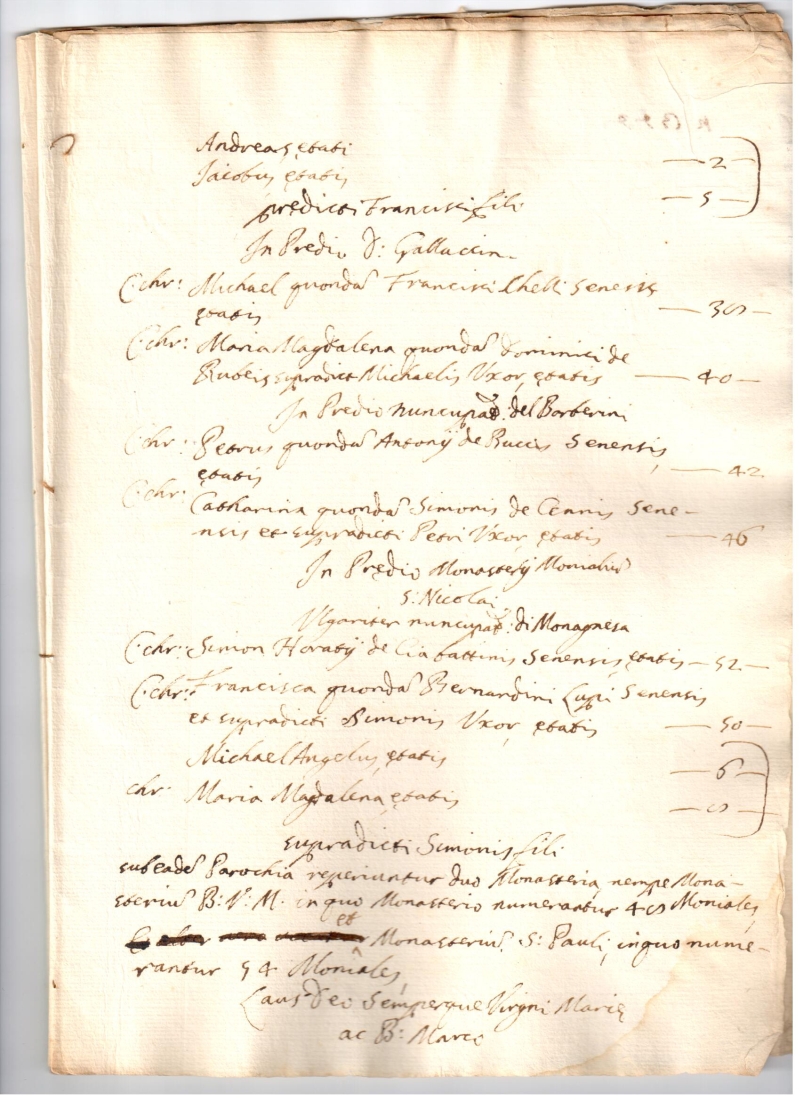 Andreas ętati — 2 —
Jacobus ętatis — 5 —
prędicti Francisci fili
In Predio D: Galluccin.
C: chr: Michael quonda᷉ Francisci Chelli Senesis
ętatis — 38 —
C: chr: Maria Magdalena quonda᷉ Dominici de
Rubeis supradict Michaelis Uxor, ętatis — 40 —
In Predio nuncupat: del Barberini
C: chr: Petrus quonda᷉ Antonij de Ruccis Senensis
ętatis — 42
C: chr: Catharina quonda᷉ Simonis de Cennis Sene-
nsis et supradicti Petri Uxor, ętatis — 46
In Prędio Monasterij Monialiu᷉
S: Nicolai
Vlgariter nuncupat: di Monagnesa
C: chr: Simon Horatij de Ciabattinis Senensis, ętatis — 52 —
C: chr: Francisca quonda᷉ Bernardini Lupi Senensis
et supradicti Simonis Uxor, ętatis — 50 —
Michael Angelus, ętatis — 6 —
chr Maria Magdalena, ętatis — 8 —
supradicti Simonis fili
sub eade᷉ Parochia reperiuntur duo Monasteria, nempe Mona-
steriu᷉ B: V: M. in quo Monasterio numerantur 48 Moniales,
et
Monasteriu᷉ S: Pauli, in quo nume-
rantur 54 Moniales
Laus Deo Semperque Virgni Marię
ac B: Marco